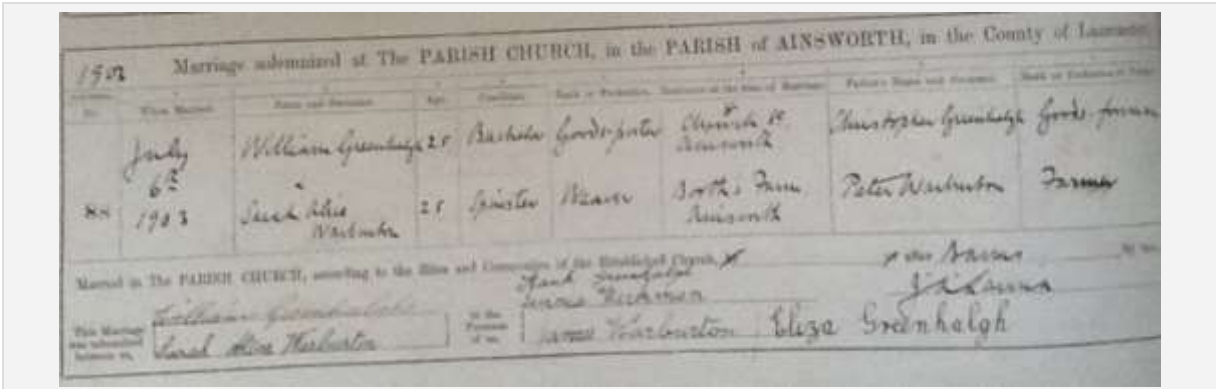 1903 Marriage solemnized at The PARISH CHURCH, in the PARISH of AINSWORTH, in the County of Lancaster
When Married Name and Surname Age Condition Rank or Profession Residence at the time of Marriage Father's Name and Surname Rank or Profession of Father
July 6th 1903
88
William Greenhalgh 25 Bachelor Goods-porter Church St. Ainsworth Christopher Greenhalgh Goods-foreman
Sarah Alice Warburton 25 Spinster Weaver Booth's Farm Ainsworth Peter Warburton Farmer
Married in The PARISH CHURCH, according to the Rites and Ceremonies of the Established Church,
This Marriage was solemnized between us,
William Greenhalgh
Sarah Alice Warburton
in the Presence of us,
Frank Greenhalgh
James Warburton Eliza Greenhalgh